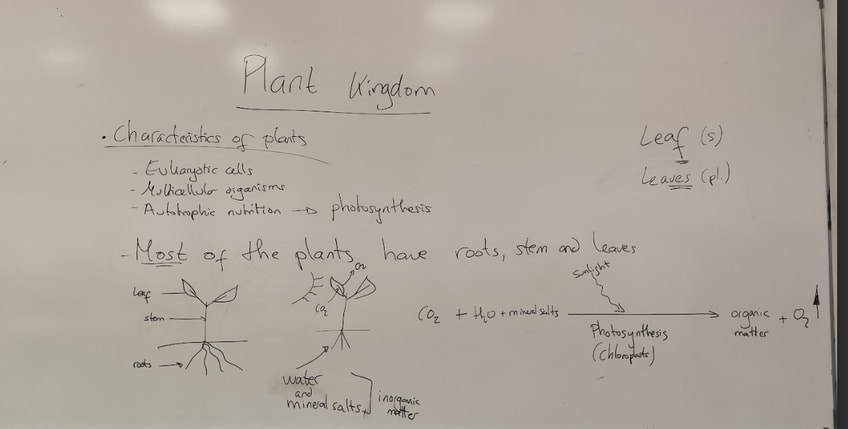 Plant Kingdom
• Characteristics of plants
- Eukaryotic cells
- Multicellular organisms
- Autotrophic nutrition → photosynthesis
Leaf (s)
Leaves (pl.)
- Most of the plants have roots, stem and leaves
leaf
stem
roots
O2
CO2
water
and
mineral salts
inorganic
matter
sunlight
CO2 + H2O + mineral salts → organic matter + O2
Photosynthesis
(chloroplasts)